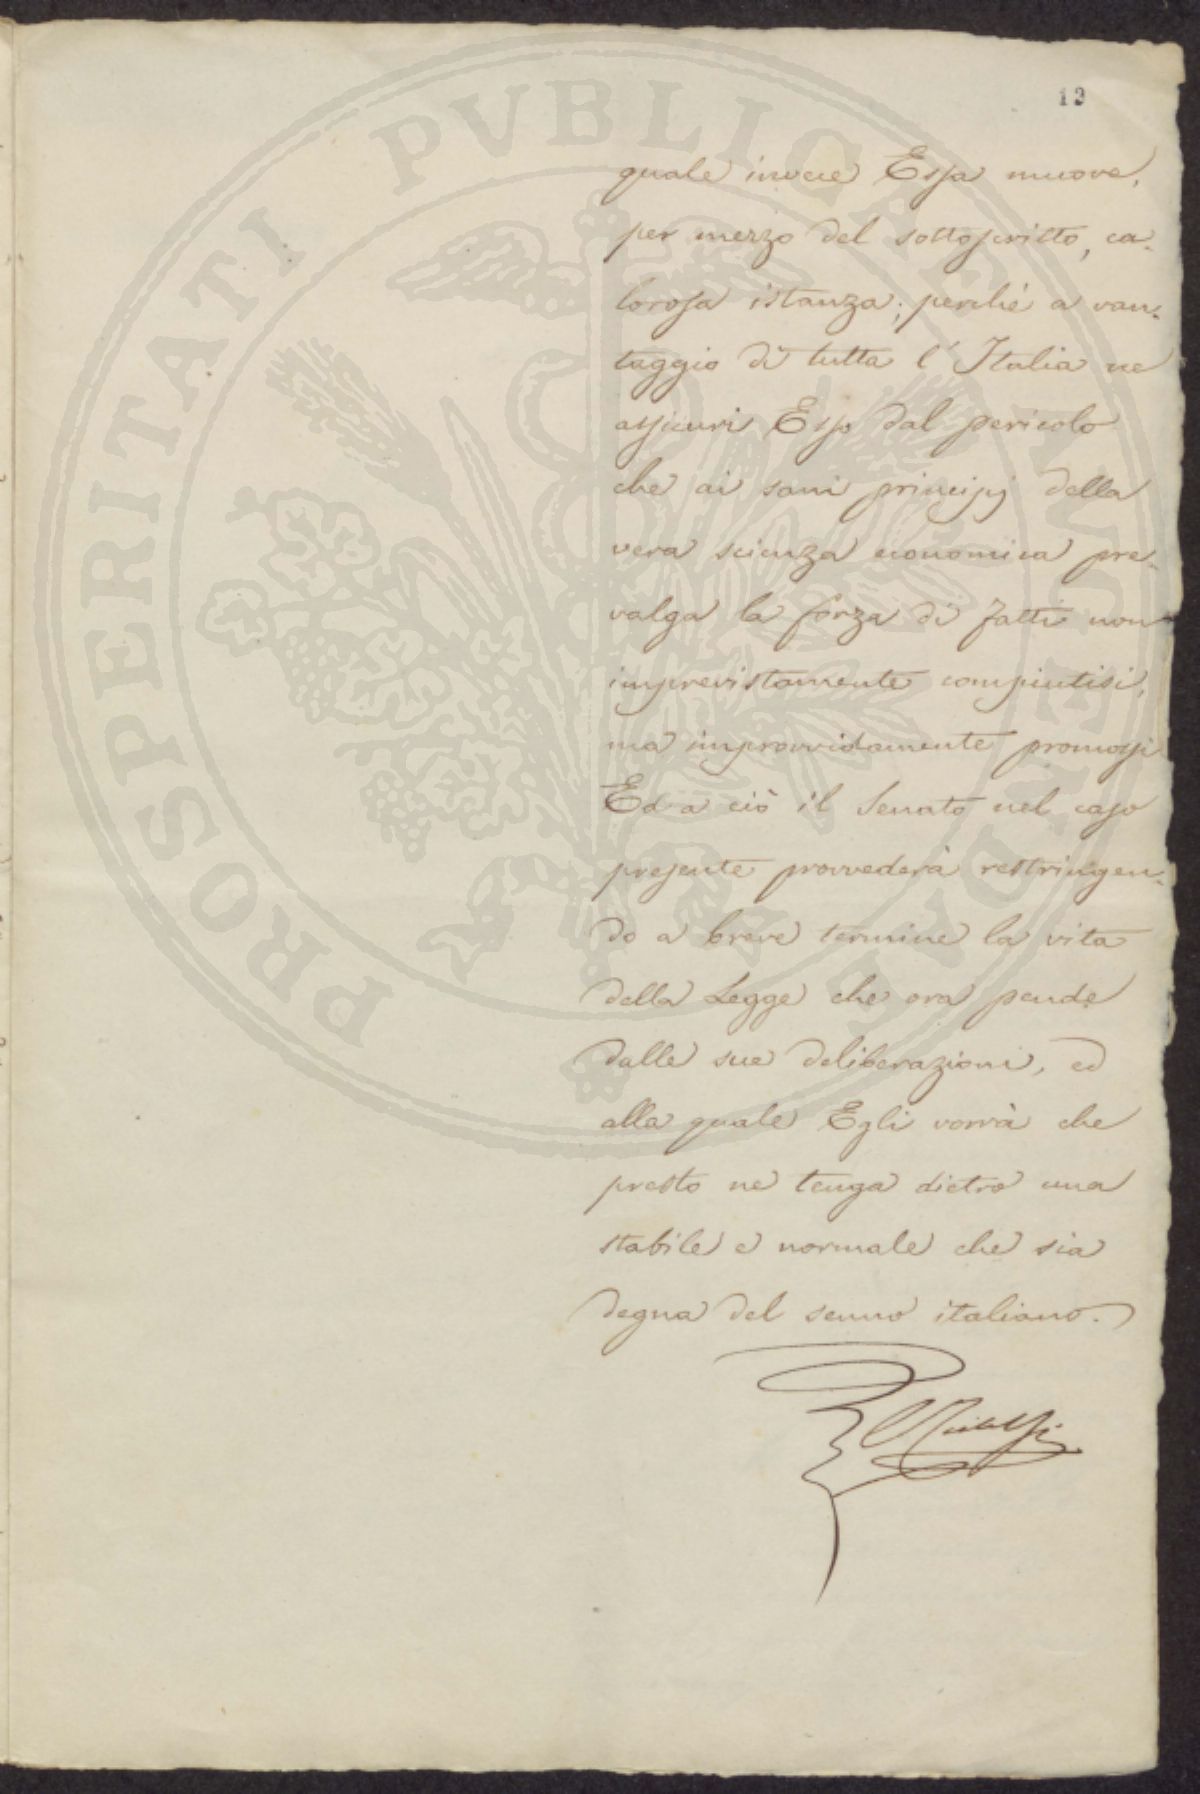 12
quale invece Essa muove,
per mezzo del sottoscritto, ca-
lorosa istanza; perché a van-
taggio di tutta l'Italia ne
assicuri Esso dal pericolo
che ai sani principj della
vera scienza economica pre-
valga la forza di fatti non
imprevistamente compiutisi,
ma improvvidamente promossi
Ed a ciò il Senato nel caso
presente provvederà restringen-
do a breve termine la vita
della Legge che ora pende
dalle sue deliberazioni, ed
alla quale Egli vorrà che
presto ne tenga dietro una
stabile e normale che sia
degna del senno italiano.
PROSPERITATI PVBLICAE